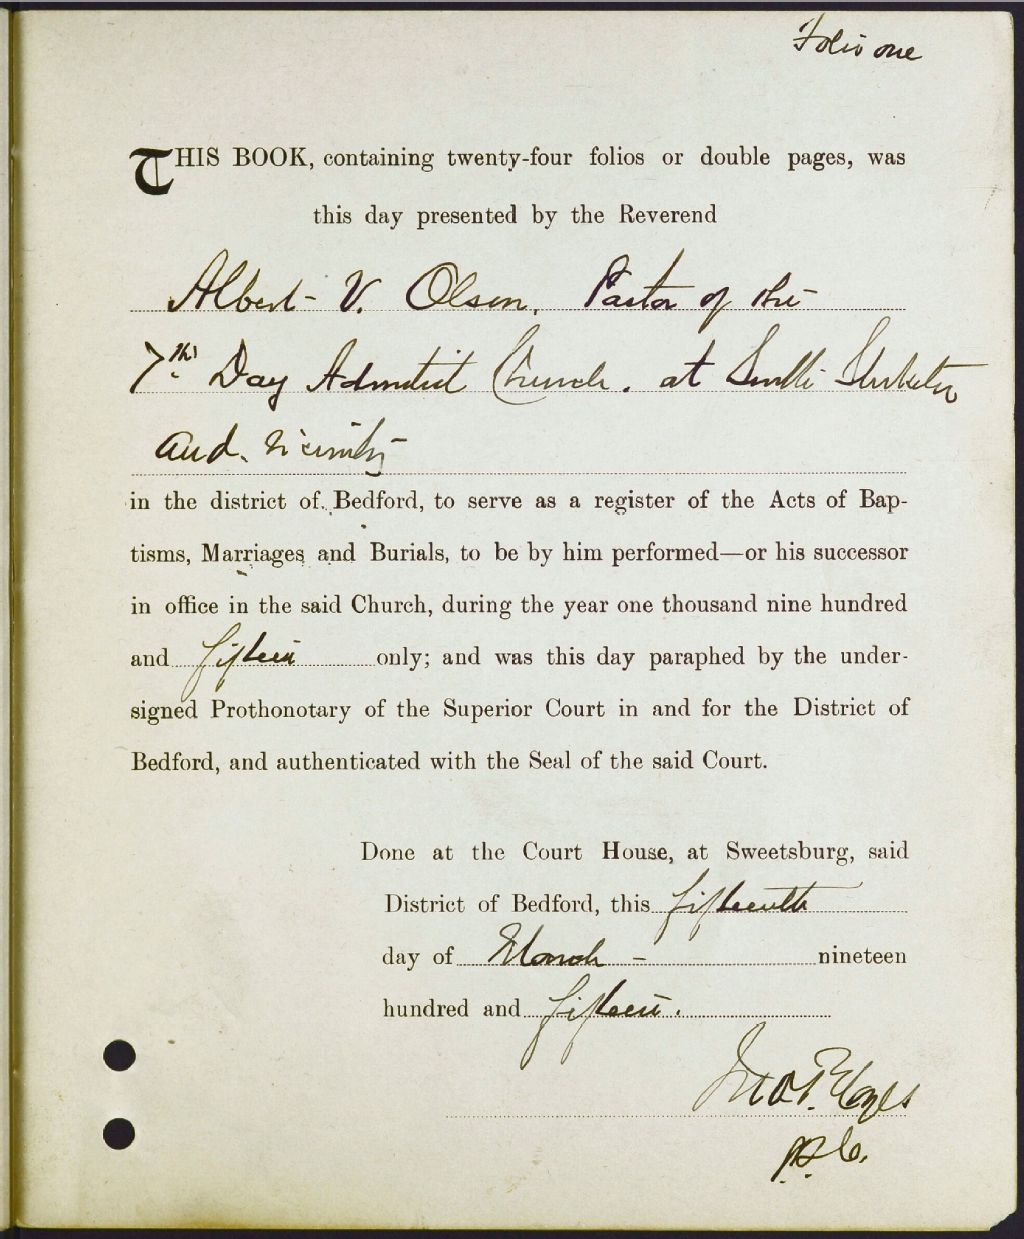 Folio one
THIS BOOK, containing twenty-four folios or double pages, was
this day presented by the Reverend
Albert V. Olson, Pastor of the
7th Day Adventist Church. at South Stukely
and vicinity
in the district of Bedford, to serve as a register of the Acts of Bap-
tisms, Marriages and Burials, to be by him performed—or his successor
in office in the said Church, during the year one thousand nine hundred
and fifteen only; and was this day paraphed by the under-
signed Prothonotary of the Superior Court in and for the District of
Bedford, and authenticated with the Seal of the said Court.
Done at the Court House, at Sweetsburg, said
District of Bedford, this fifteenth
day of March - nineteen
hundred and fifteen.